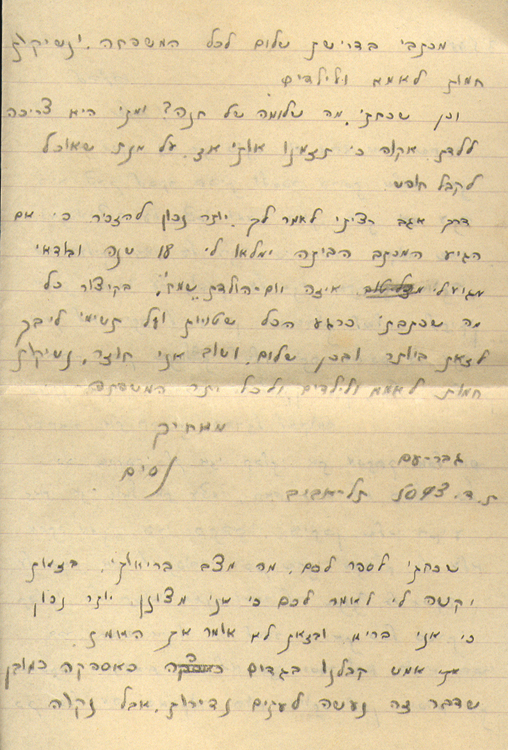 מכתבי בדרישת שלום לכל המשפחה. ונשיקות
חמות לאמא ולילדים.
וכן שכחתי, מה שלומה של חנה? ומתי היא צריכה
ללדת. אקוה כי תזמנו אותי אז על מנת שאוכל
לקבל חופש.
דרך אגב רציתי לאמר לך. יותר נכון להזכיר כי אם
הגיע המכתב הביתה ימלאו לי 18 שנה ובודאי
מגיע לי איזה יום-הולדת שמח. בקיצור כל
מה שכתבתי כרגע הכל שטויות ועל תשימי ליבך
לזאת ביותר ובכן שלום. ושוב אני חוזר, נשיקות
חמות לאמא ולילדים ולכל יתר המשפחה
מאחיך
נסים
גבר-עם
ת.ד. תל-אביב
שכחתי לספר לכם. מה מצב בריאותי. בזאת
יקשה לי לאמר לכם כי אני מצונן. יותר נכון
כי אני בריא ובזאת לא אומר את האמת.
אמש קבלנו בגדים כאספקה כמובן
שדבר זה נעשה לעתים נדירות, אבל נקוה